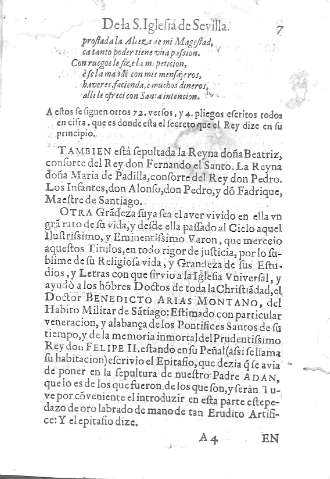 De la S. Iglesia de Sevilla. 7
postada la Alteza de mi Magestad,
ca tanto poder tiene vna passion.
Con ruegos le fize la mi peticion,
è se la mãdè con mis mensajeros,
haveres, facienda, è muchos dineros,
alli le ofreci con Santa intencion.
A estos se siguen otros 72. versos, y 4. pliegos escritos todos
en cifra, que es donde esta el secreto que el Rey dize en su
principio.
TAMBIEN està sepultada la Reyna doña Beatriz,
consorte del Rey don Fernando el Santo. La Reyna
doña Maria de Padilla, consorte del Rey don Pedro.
Los Infantes, don Alonso, don Pedro, y dõ Fadrique,
Maestre de Santiago.
OTRA Grãdeza suya sea el aver vivido en ella vn
grã rato de su vida, y desde ella passado al Cielo aquel
Ilustrissimo, y Eminentissimo Varon, que merecio
aquestos Titulos, en todo rigor de justicia, por lo su-
blime de su Religiosa vida, y Grandeza de sus Estu-
dios, y Letras con que sirviò a la Iglesia Vniversal, y
ayudò a los hõbres Doctos de toda la Christiãdad, el
Doctor BENEDICTO ARIAS MONTANO, del
Habito Militar de Sãtiago; Estimado con particular
veneracion, y alabança de los Pontifices Santos de su
tiempo, y de la memoria inmortal del Prudentissimo
Rey don FELIPE II. estando en su Peña (assi se llama
su habitacion) escrivio el Epitafio, que dezia q̃ se avia
de poner en la sepultura de nuestro Padre ADAN,
que lo es de los que fueron, de los que son, y seràn Tu-
ve por cõveniente el introduzir en esta parte este pe-
dazo de oro labrado de mano de tan Erudito Artifi-
ce: Y el epitafio dize.
A 4 EN